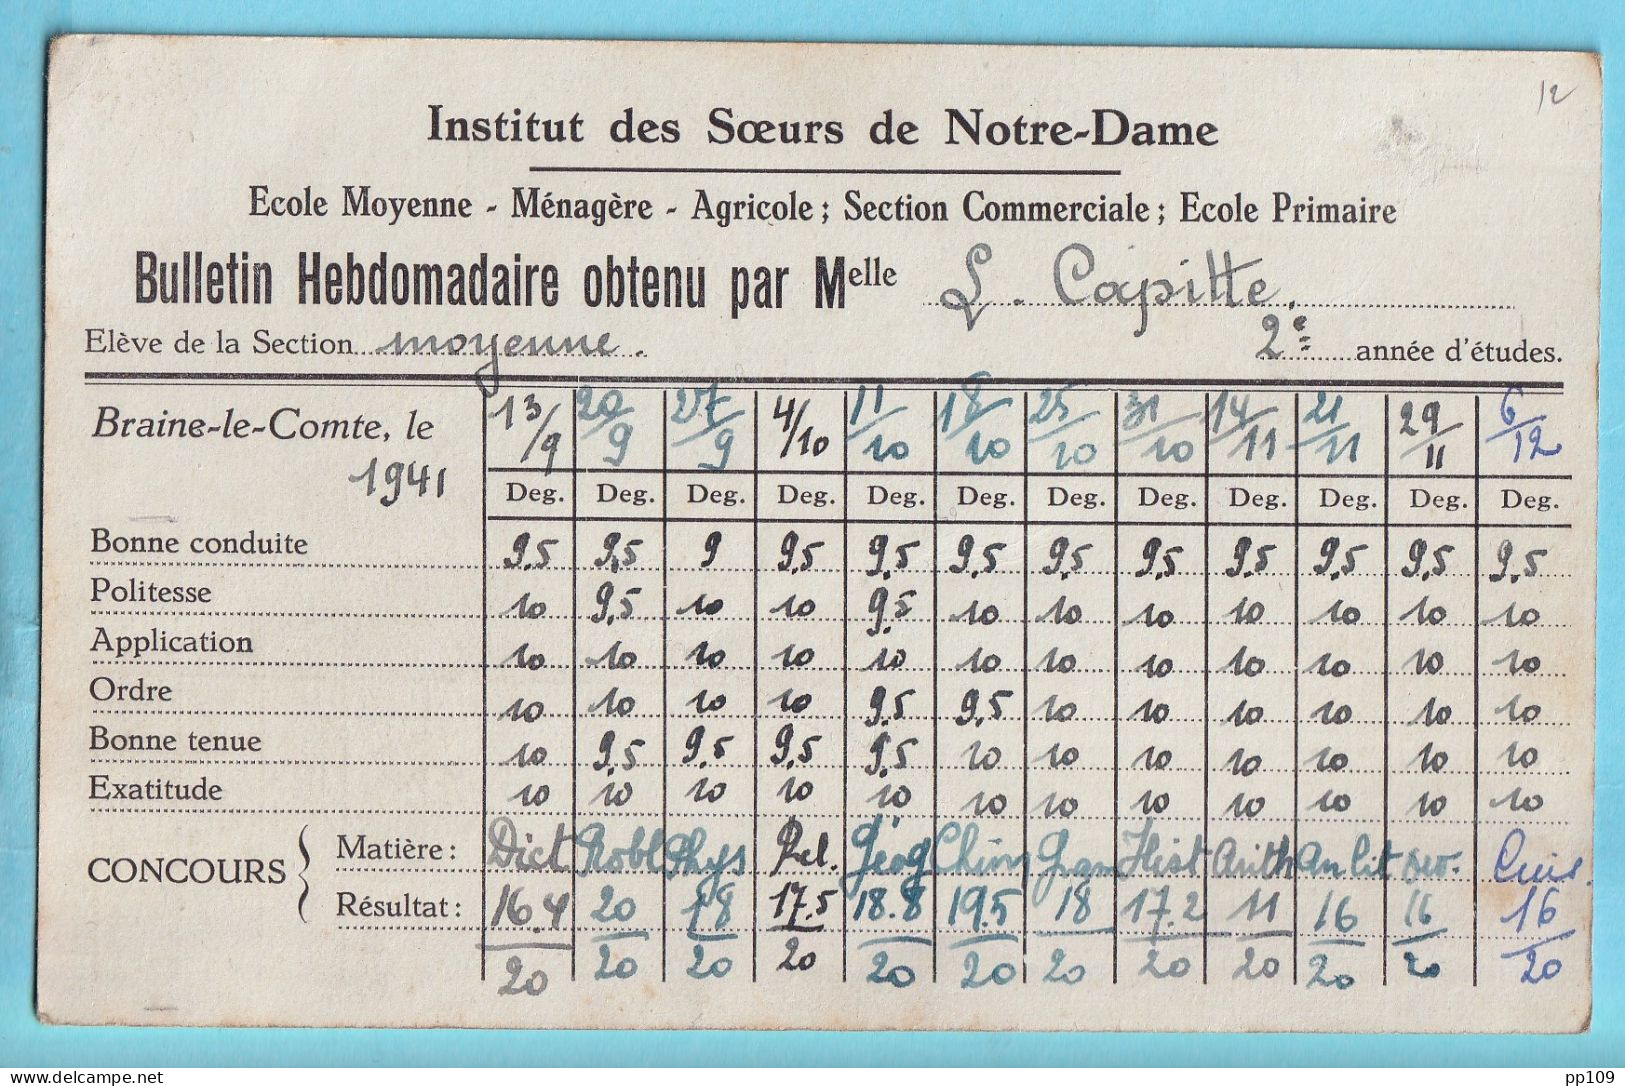 12
Institut des Sœurs de Notre-Dame
Ecole Moyenne - Ménagère - Agricole; Section Commerciale; Ecole Primaire
Bulletin Hebdomadaire obtenu par Melle L. Capitte.
Elève de la Section moyenne. 2e année d'études.
Braine-le-Comte, le 1941 13/9 20/9 27/9 4/10 11/10 18/10 25/10 31/10 14/11 21/11 29/11 6/12
Deg. Deg. Deg. Deg. Deg. Deg. Deg. Deg. Deg. Deg. Deg. Deg.
Bonne conduite 9.5 9.5 9 9.5 9.5 9.5 9.5 9.5 9.5 9.5 9.5 9.5
Politesse 10 9.5 10 10 9.5 10 10 10 10 10 10 10
Application 10 10 10 10 10 10 10 10 10 10 10 10
Ordre 10 10 10 10 9.5 9.5 10 10 10 10 10 10
Bonne tenue 10 9.5 9.5 9.5 9.5 10 10 10 10 10 10 10
Exatitude 10 10 10 10 10 10 10 10 10 10 10 10
CONCOURS Matière: Dict Phys Rel. Géog Hist Arith An lit Cuis.
Résultat: 16.4/20 20/20 18/20 17.5/20 18.8/20 19.5/20 18/20 17.2/20 11/20 16/20 16/20 16/20
pp109